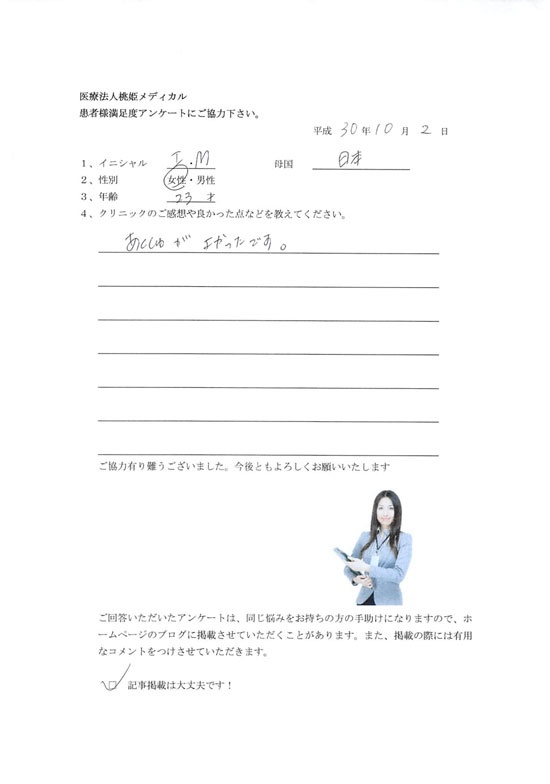 医療法人桃姫メディカル
患者様満足度アンケートにご協力下さい。
平成 30年10月 2 日
1、イニシャル I・M 母国 日本
2、性別 女性・男性
3、年齢 23 才
4、クリニックのご感想や良かった点などを教えてください。
が よかったです。
ご協力有り難うございました。今後ともよろしくお願いいたします
ご回答いただいたアンケートは、同じ悩みをお持ちの方の手助けになりますので、ホ
ームページのブログに掲載させていただくことがあります。また、掲載の際には有用
なコメントをつけさせていただきます。
□ 記事掲載は大丈夫です！